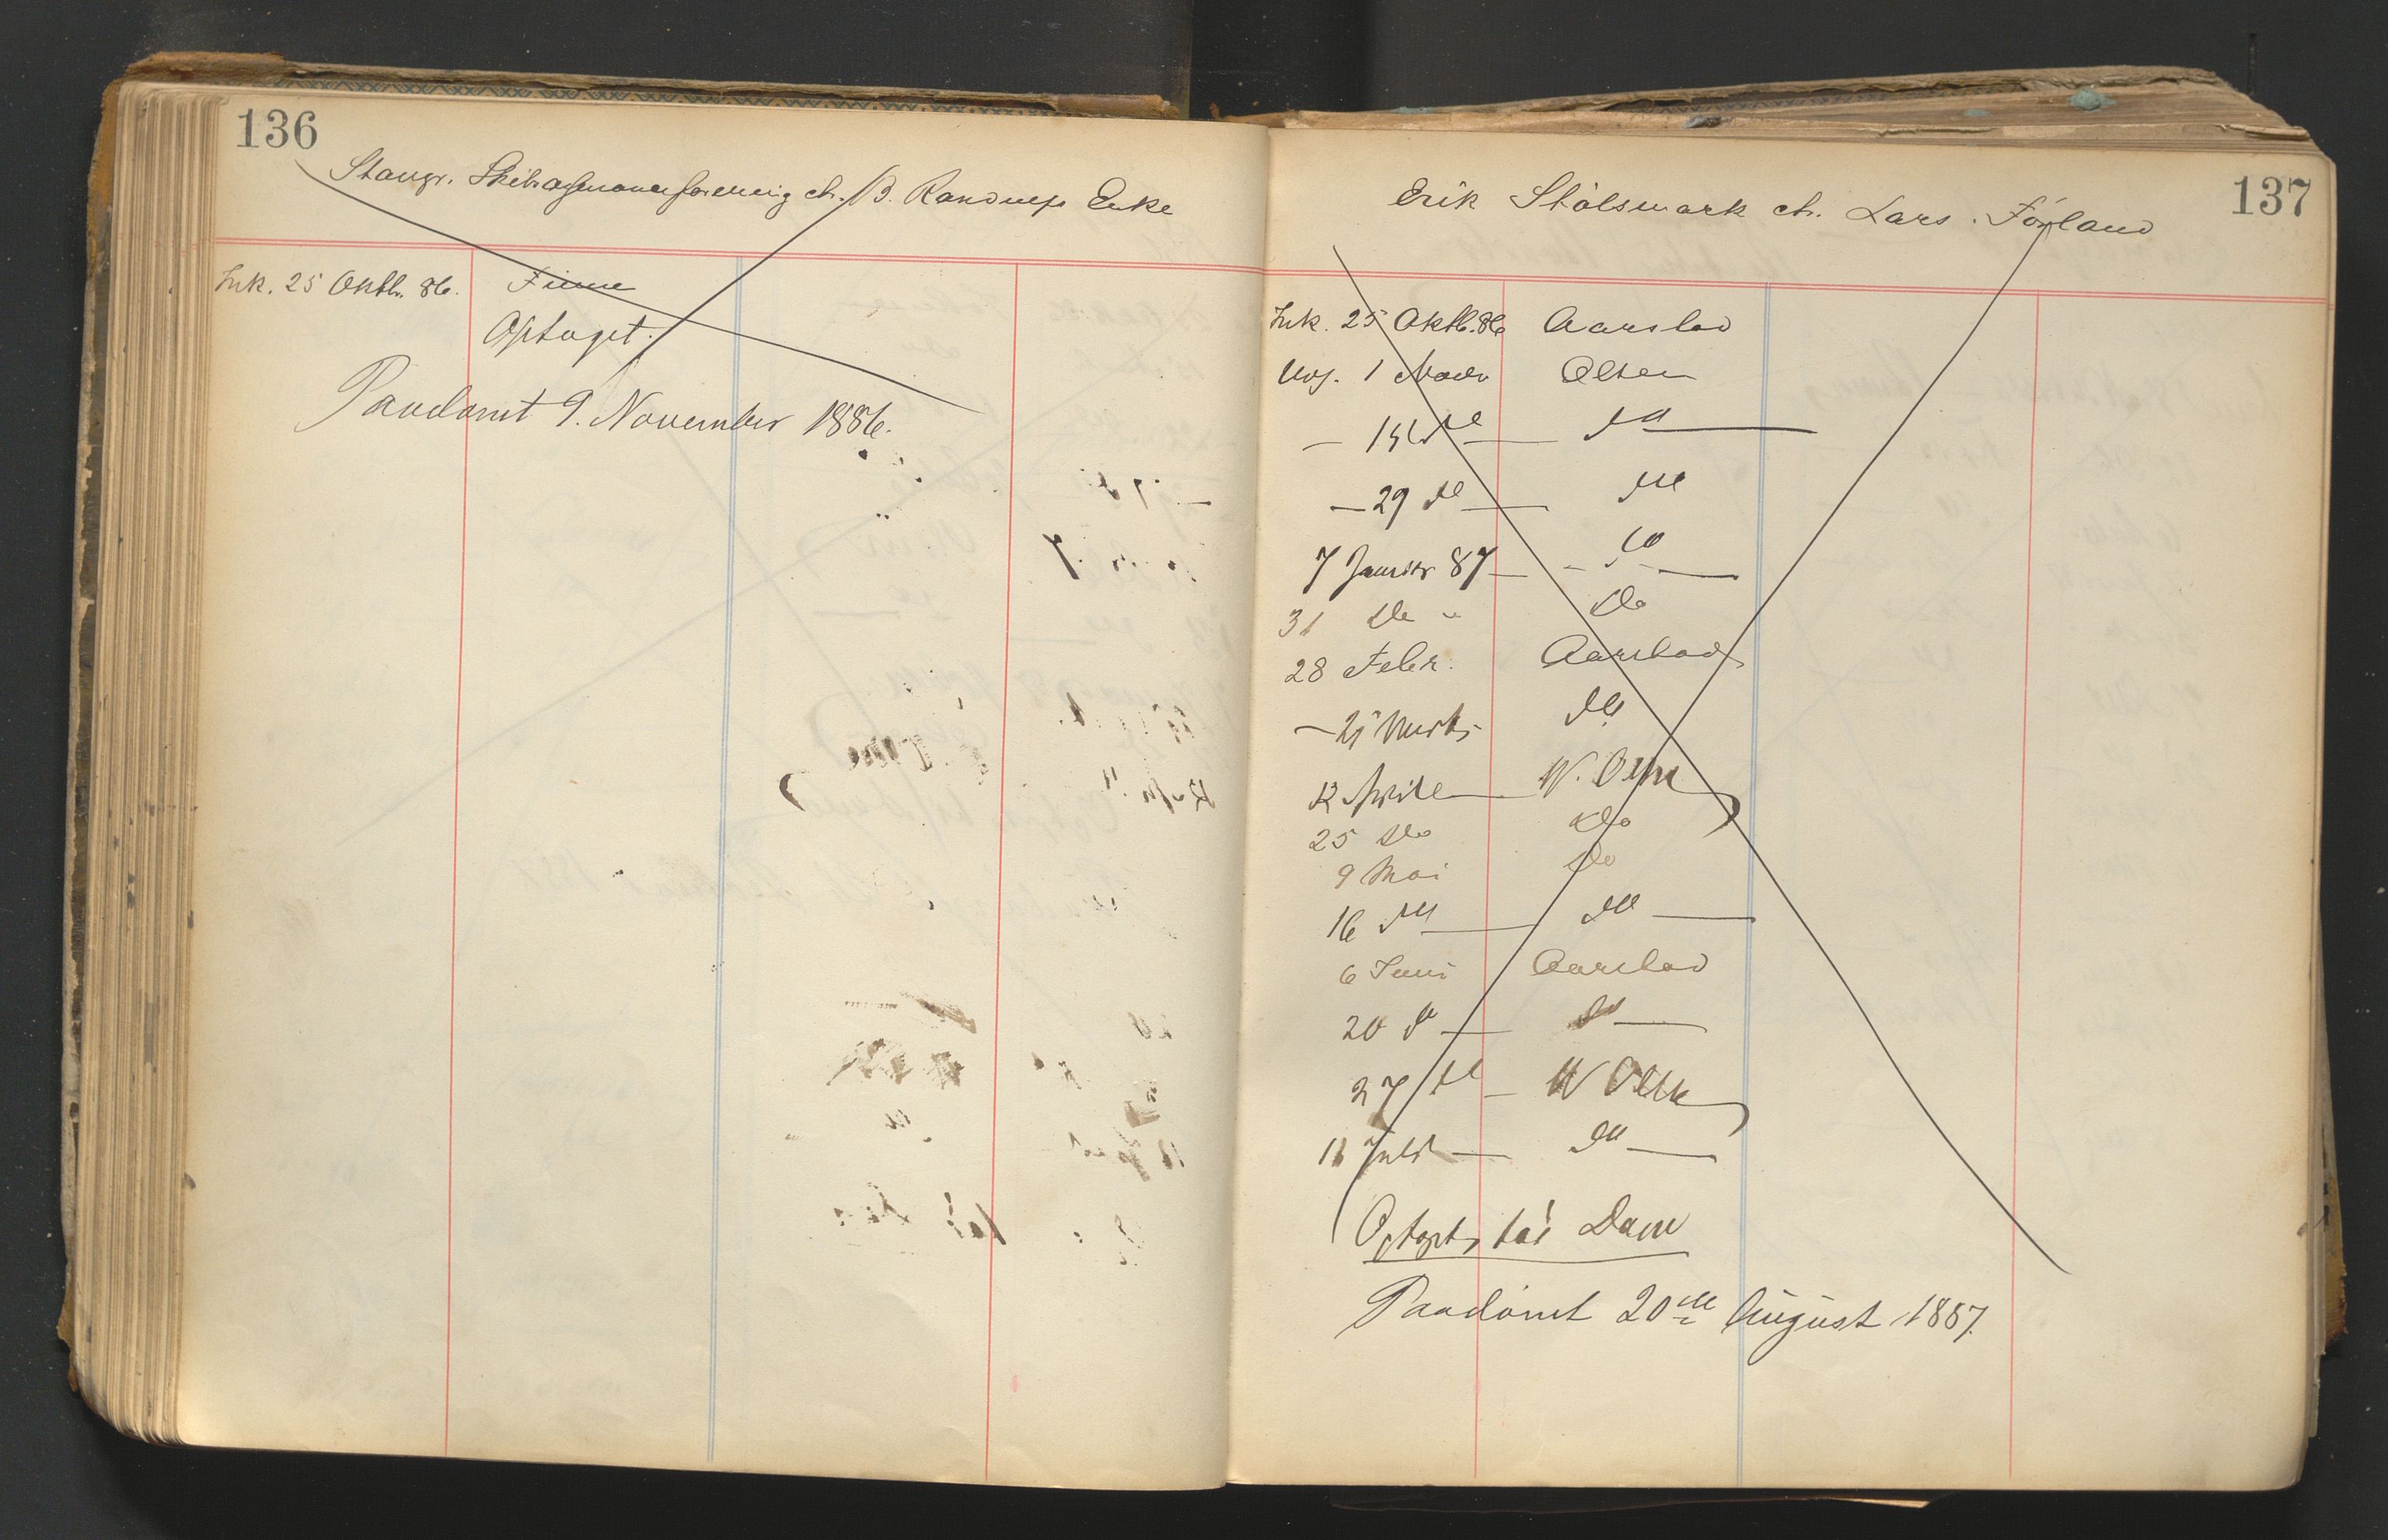 136
Stavgr. Skibsassuranceforening ctr. B. Randulfs Enke
Ink. 25 Oktb. 86. Finne
Optaget.
Paadømt 9. November 1886.
137
Erik Stølsmark ctr. Lars Førland
Ink. 25 Oktb. 86 Aarstad
Uds. 1 Novbr Olsen
— 15 do — do —
— 29 do — do
7 Januar 87 — do —
31 do " do
28 Febr. Aarstad
— 21 Marts do
12 April — W. Olsen
25 do do
9 Mai do
16 do — do —
6 Juni Aarstad
20 do — do —
27 do — W Olsen
11 Juli — do —
Optaget til Dom
Paadømt 20de August 1887.